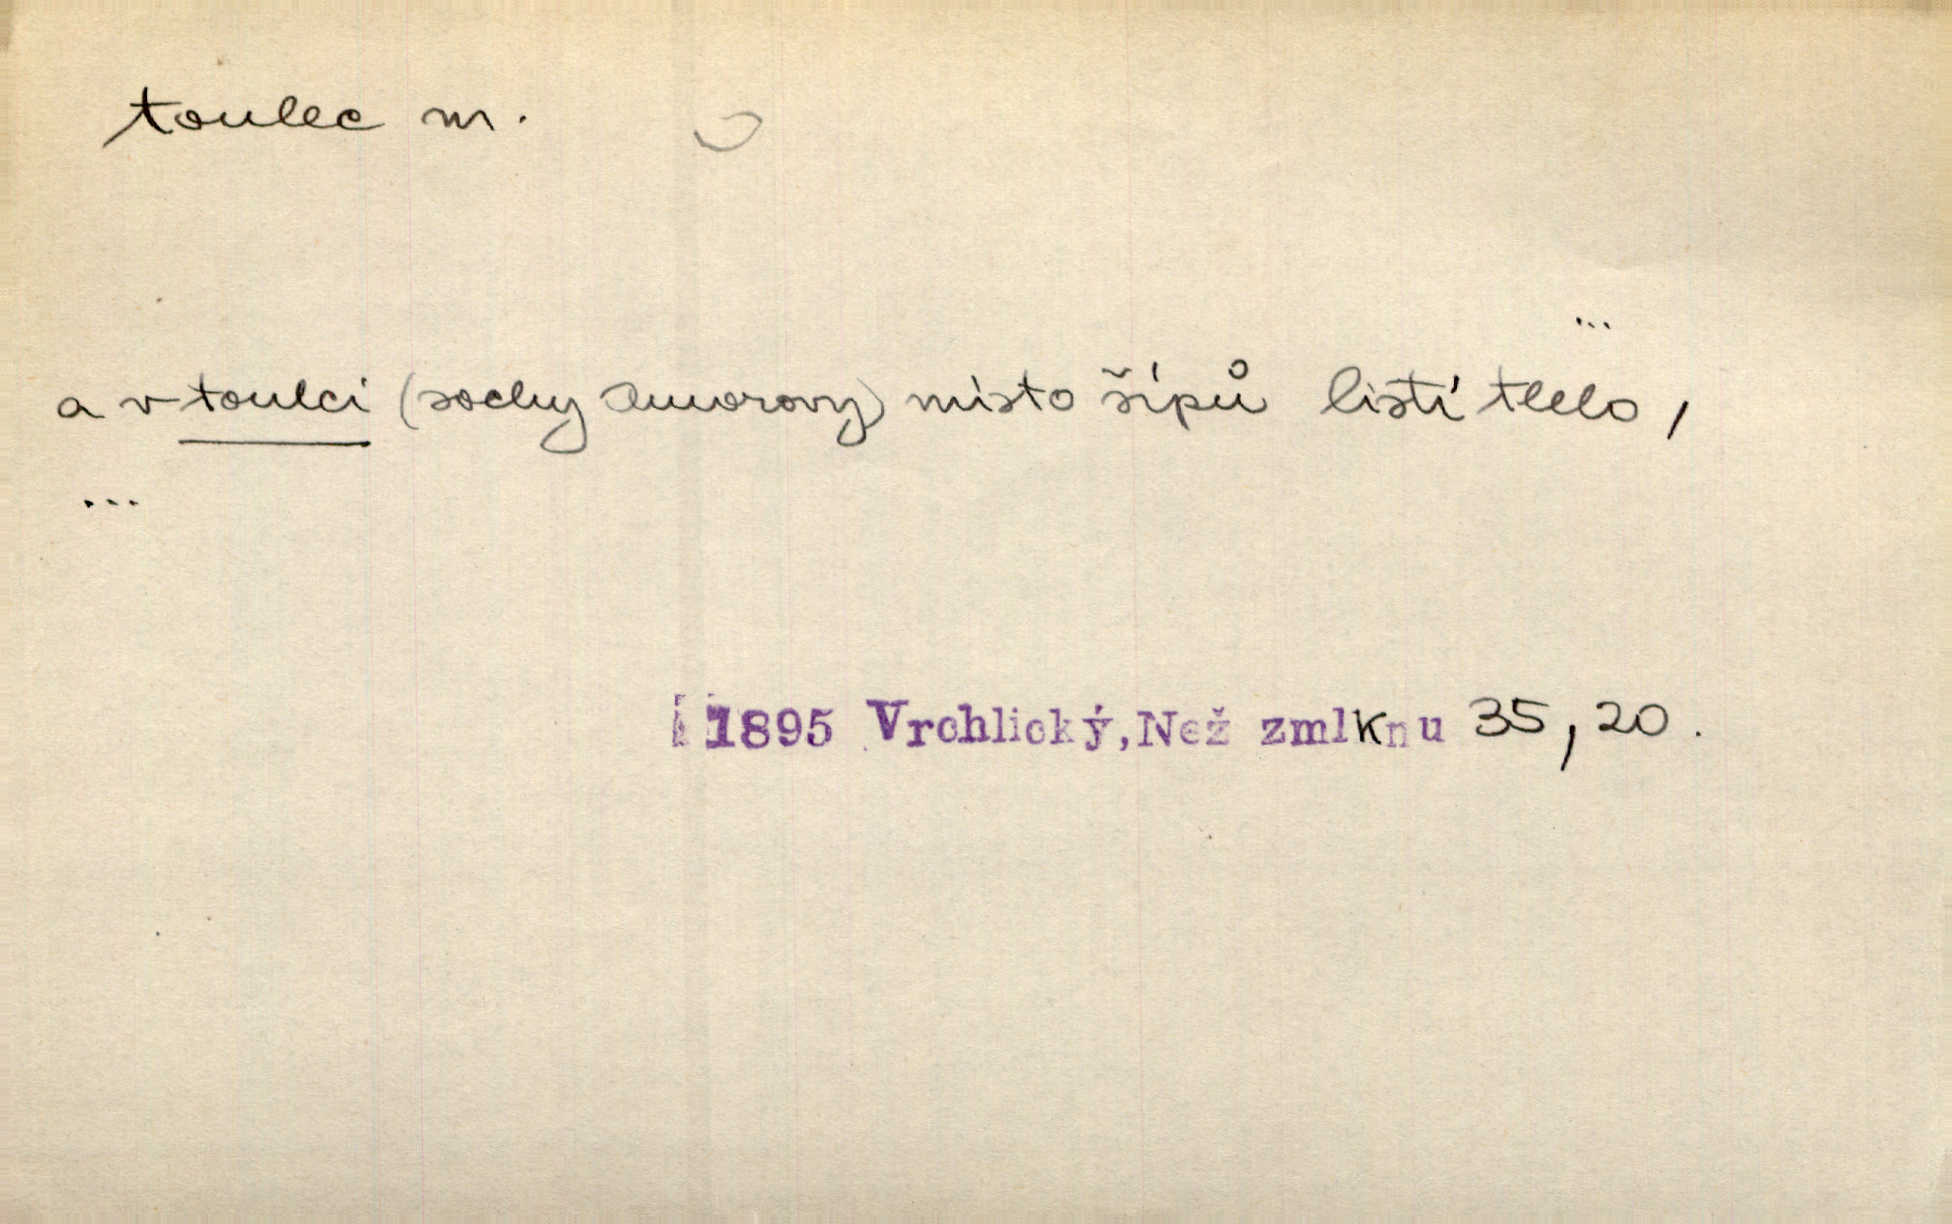 toulec m.
...
a v toulci (sochy Amorovy) místo šípů listí tlelo,
...
1895 Vrchlický, Než zmlknu 35, 20.